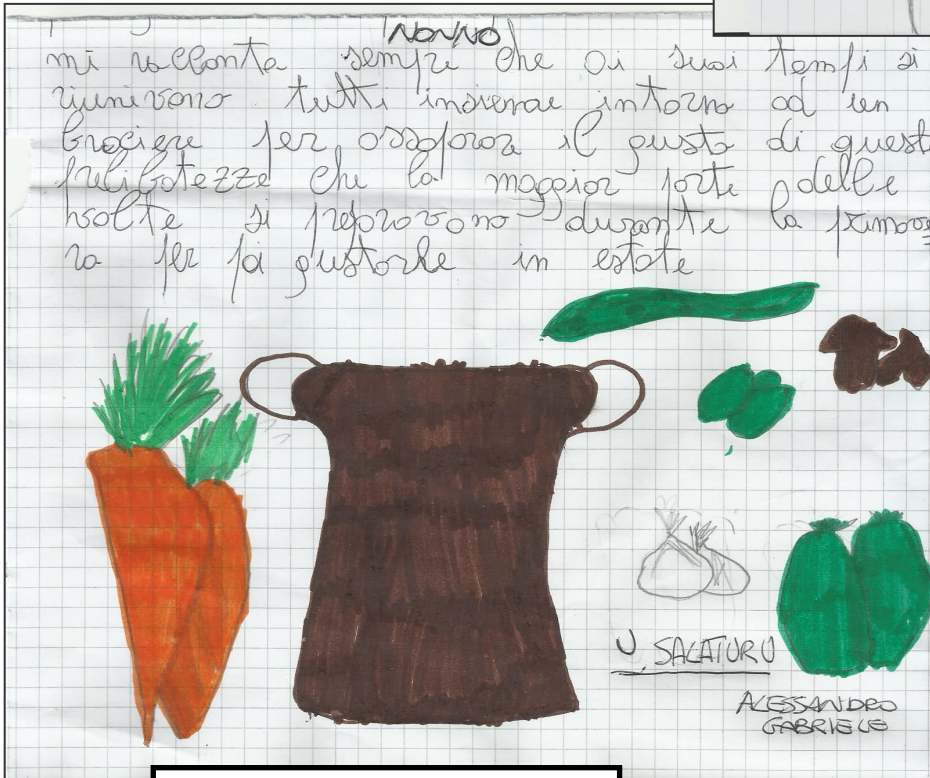 NONNO
mi racconta sempre che ai suoi tempi si
riunivano tutti insieme intorno ad un
braciere per assaporar il gusto di quest
prelibatezze che la maggior parte delle
volte si preparavano durante la primave
ra per poi gustarle in estate
U SALATURU
ALESSANDRO
GABRIELE